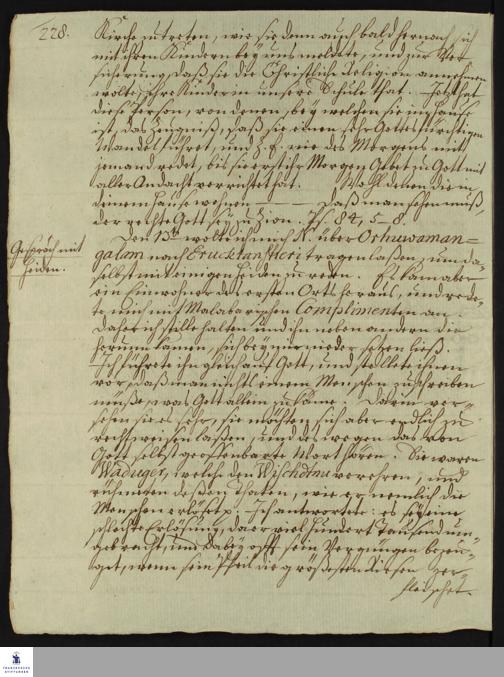 228.
Kirche zu treten, wie sie denn auch bald hernach sich
mit ihren Kindern bey uns meldete, und zur Ver-
sicherung, daß sie die Christliche Religion annehmen
wolte, ihre Kinder in unsere Schule that. Jetzt hat
diese Person, von denen, bey welchen sie im Hause
ist, das Zeugniß, daß sie einen sehr Gottesfürchtigen
Wandel führet, und z. E. nie des Morgens mit
jemand redet, bis sie erst ihr Morgen Gebet zu Gott mit
aller Andacht verrichtet hat. Wohl denen die in
deinem Hause wohnen — — daß man sehen muß,
der rechte Gott sey zu Zion. Ps. 84, 5-8.
Gespräch mit
Heiden.
Den 13ten wolte ich mich N. über Oshuwaman=
galam nach Erucktantscheri tragen laßen, und da-
selbst mit einigen Heiden zu reden. Es kam aber
ein Einwohner des ersten Orts heraus, und rede-
te mich mit Malabarischen Complimenten an.
Daher ich stille halten und ihn neben andern die
herzu kamen, sich bey mir nieder setzen ließ.
Ich führete ihn gleich auf Gott, und stellete ihnen
vor, daß man nicht einem Menschen zuschreiben
müße, was Gott allein zukäme. Darin ver-
sehen sie es sehr, sie möchten sich aber endlich zu
recht weisen laßen, und deswegen das von
Gott selbst geoffenbarte Wort hören. Sie waren
Waduger, welche den Wischtnu verehren, und
rühmeten deßen Thaten, wie er nemlich die
Menschen erlöset p. Ich antwortete: es sey eine
schlechte Erlösung, da er viel hundert Tausend um-
gebracht, und dabey offt sein Vergnügen bezeu-
get, wenn sein Pfeil die grösesten Riesen zer-
fleischet.
FRANCKESCHE
STIFTUNGEN